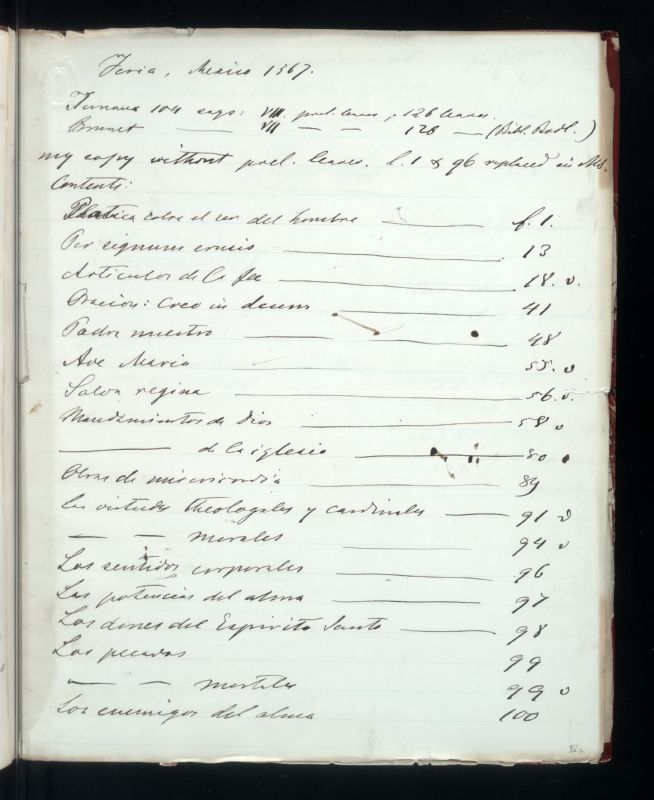 Feria, Mexico 1567.
Ternaux 104 says: VIII. prel. leaves, 126 leaves.
Brunet —— VII — — 128 — (Bibl. Bodl.)
my copy without prel. leaves. l. 1 & 96 replaced in Ms.
Contents:
Platica sobre el ser del hombre —— f. 1.
Per signum crucis —— 13
Articulos de la fee —— 18. v.
Oracion: Creo in deum —— 41
Padre nuestro —— 48
Ave Maria —— 55. v
Salva regina —— 56. v.
Mandamientos de Dios —— 58 v
—— de la iglesia —— 80
Obras de misericordia —— 89
las virtudes theologales y cardinales —— 91 v
— — morales —— 94 v
Los sentidos corporales —— 96
Las potencias del alma —— 97
Los dones del Espirito Santo —— 98
Los pecados 99
— — mortales 99 v
Los enemigos del alma 100
IVa